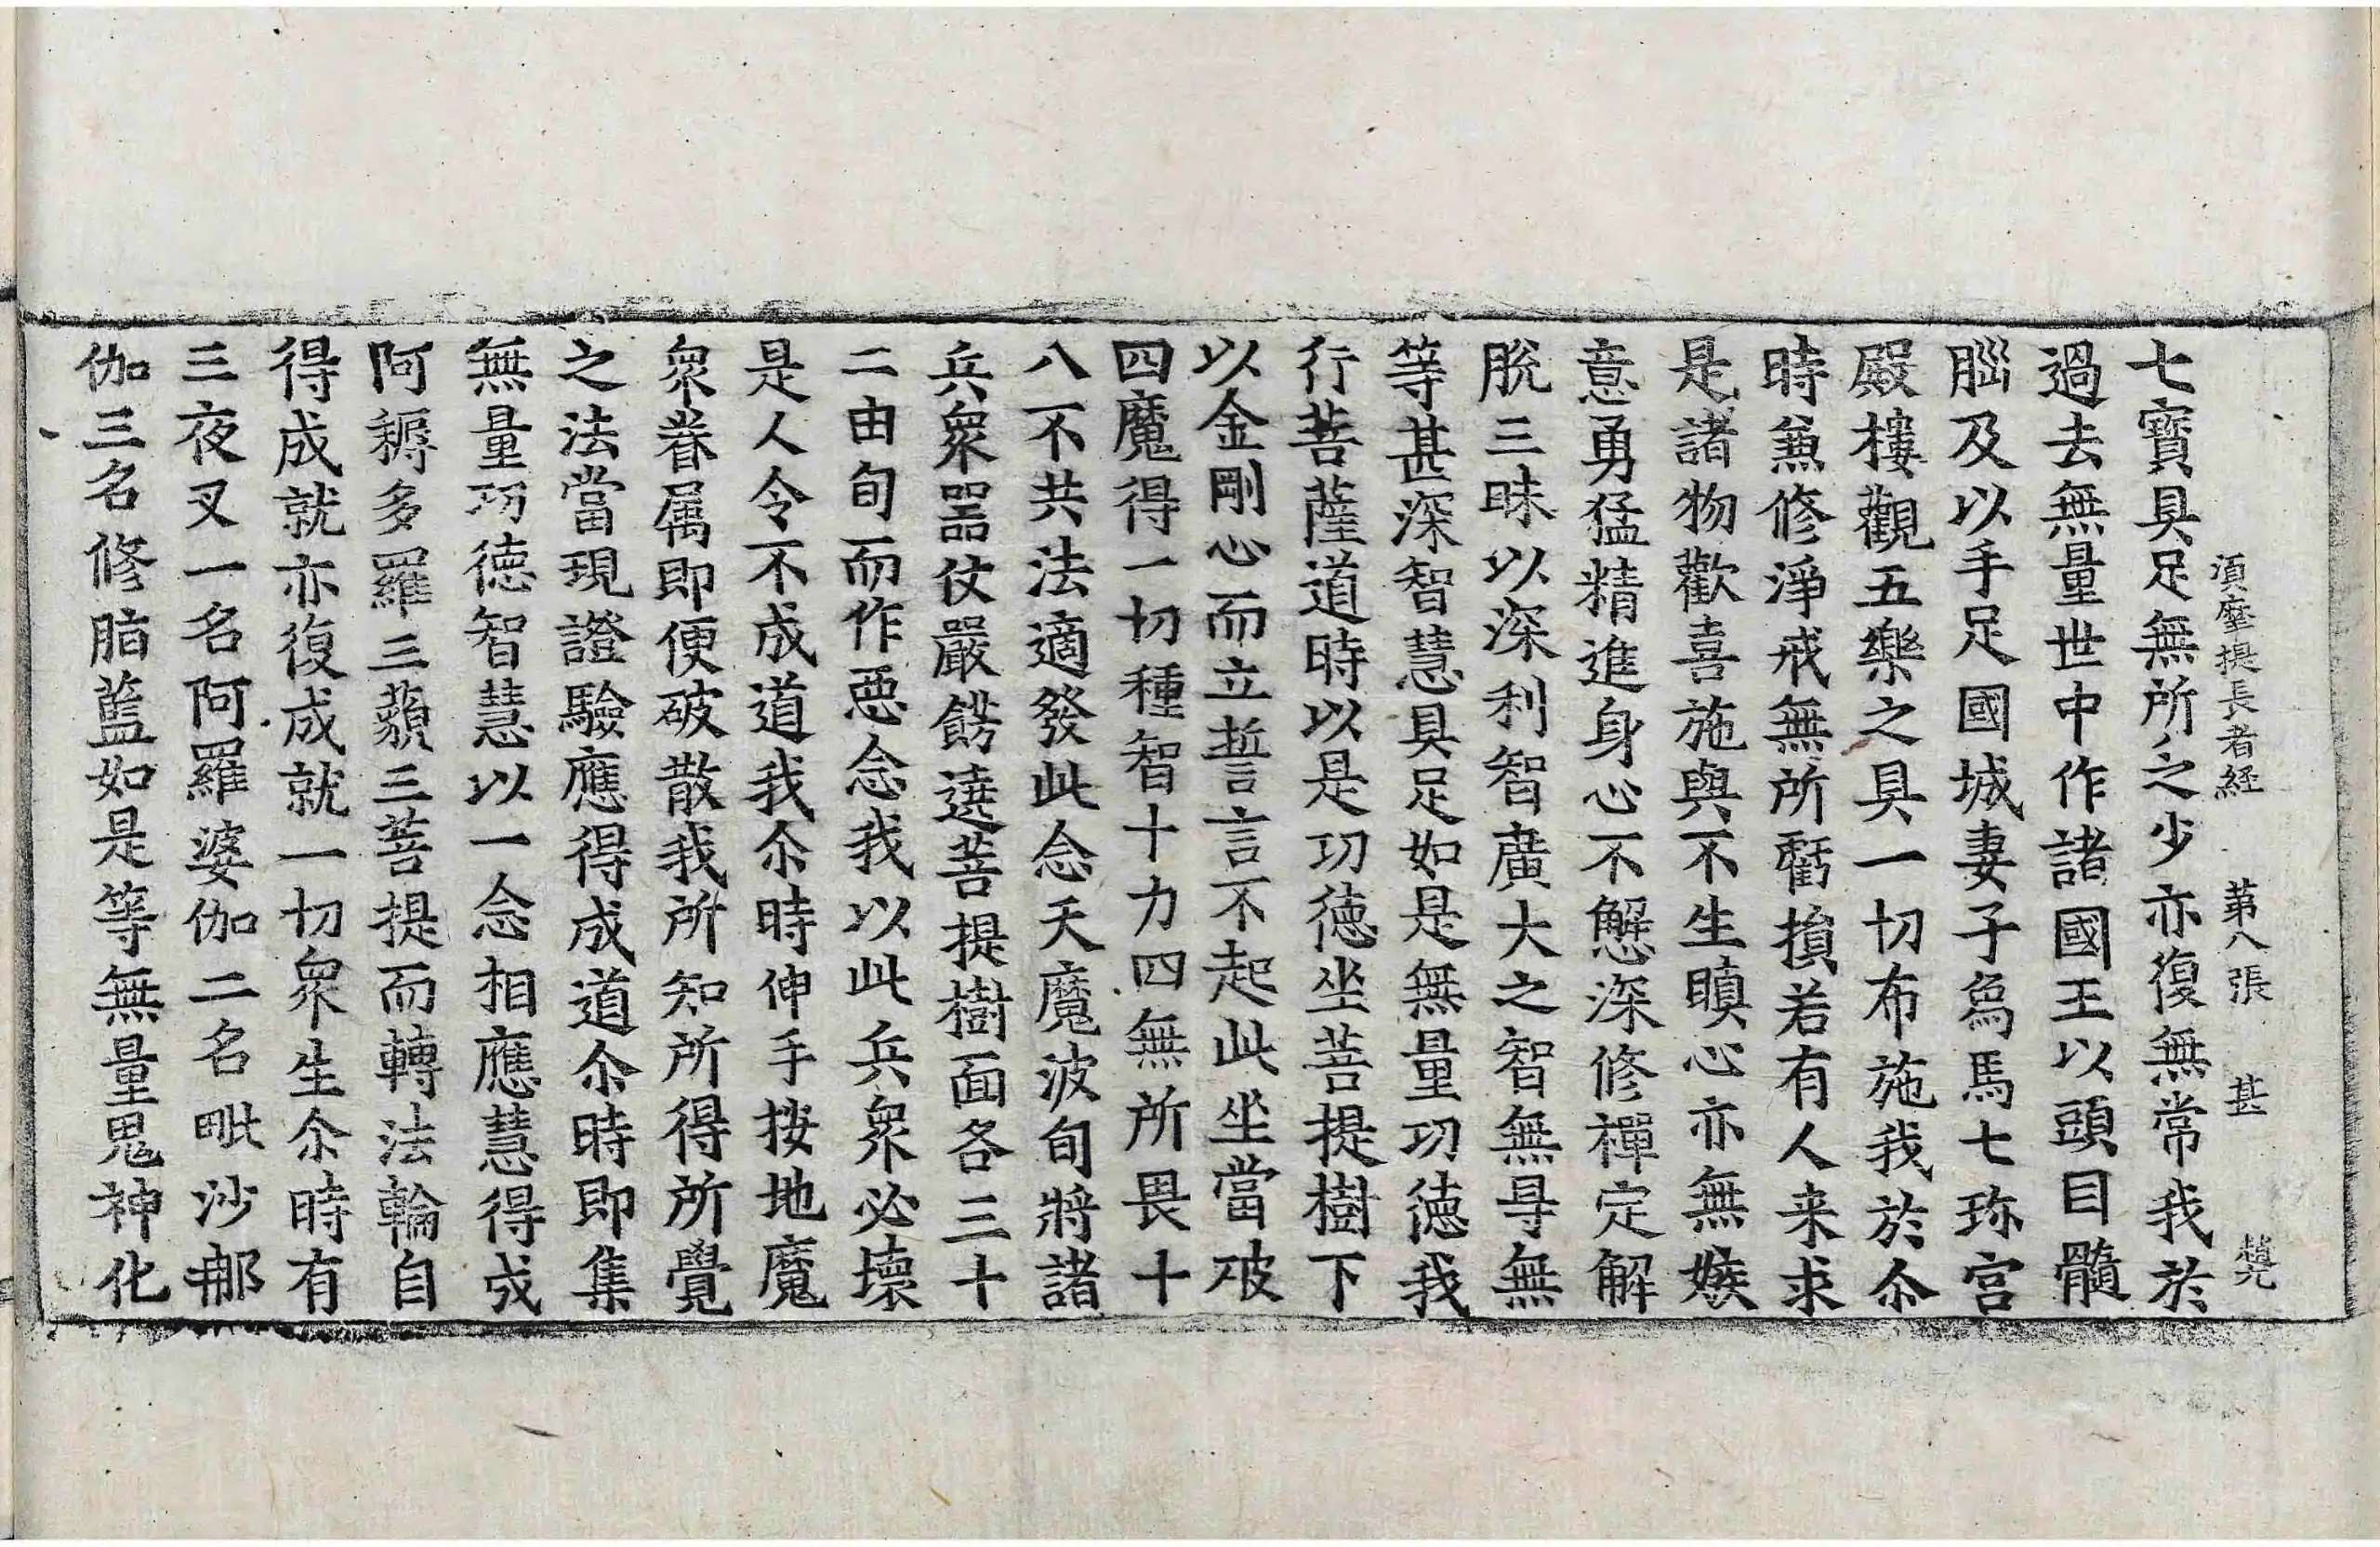 湏摩提長者経　第八張　甚　趙
七寶具足無所乏少亦復無常我於
過去無量世中作諸國王以頭目髓
腦及以手足國城妻子為馬七珎宫
殿樓觀五樂之具一切布施我於尒
時兼修淨戒無所虧損若有人来求
是諸物歡喜施與不生瞋心亦無嫉
意勇猛精進身心不懈深修禪定解
脫三昧以深利智廣大之智無㝵無
等甚深智慧具足如是無量功德我
行菩薩道時以是功德坐菩提樹下
以金剛心而立誓言不起此坐當破
四魔得一切種智十力四無所畏十
八不共法適發此念天魔波旬將諸
兵衆器仗嚴餝遶菩提樹面各三十
二由旬而作惡念我以此兵衆必壞
是人令不成道我尒時伸手按地魔
衆眷属即便破散我所知所得所覺
之法當現證驗應得成道尒時即集
無量功德智慧以一念相應慧得成
阿耨多羅三藐三菩提而轉法輪自
得成就亦復成就一切衆生尒時有
三夜叉一名阿羅婆伽二名毗沙那
伽三名修脂藍如是等無量鬼神化